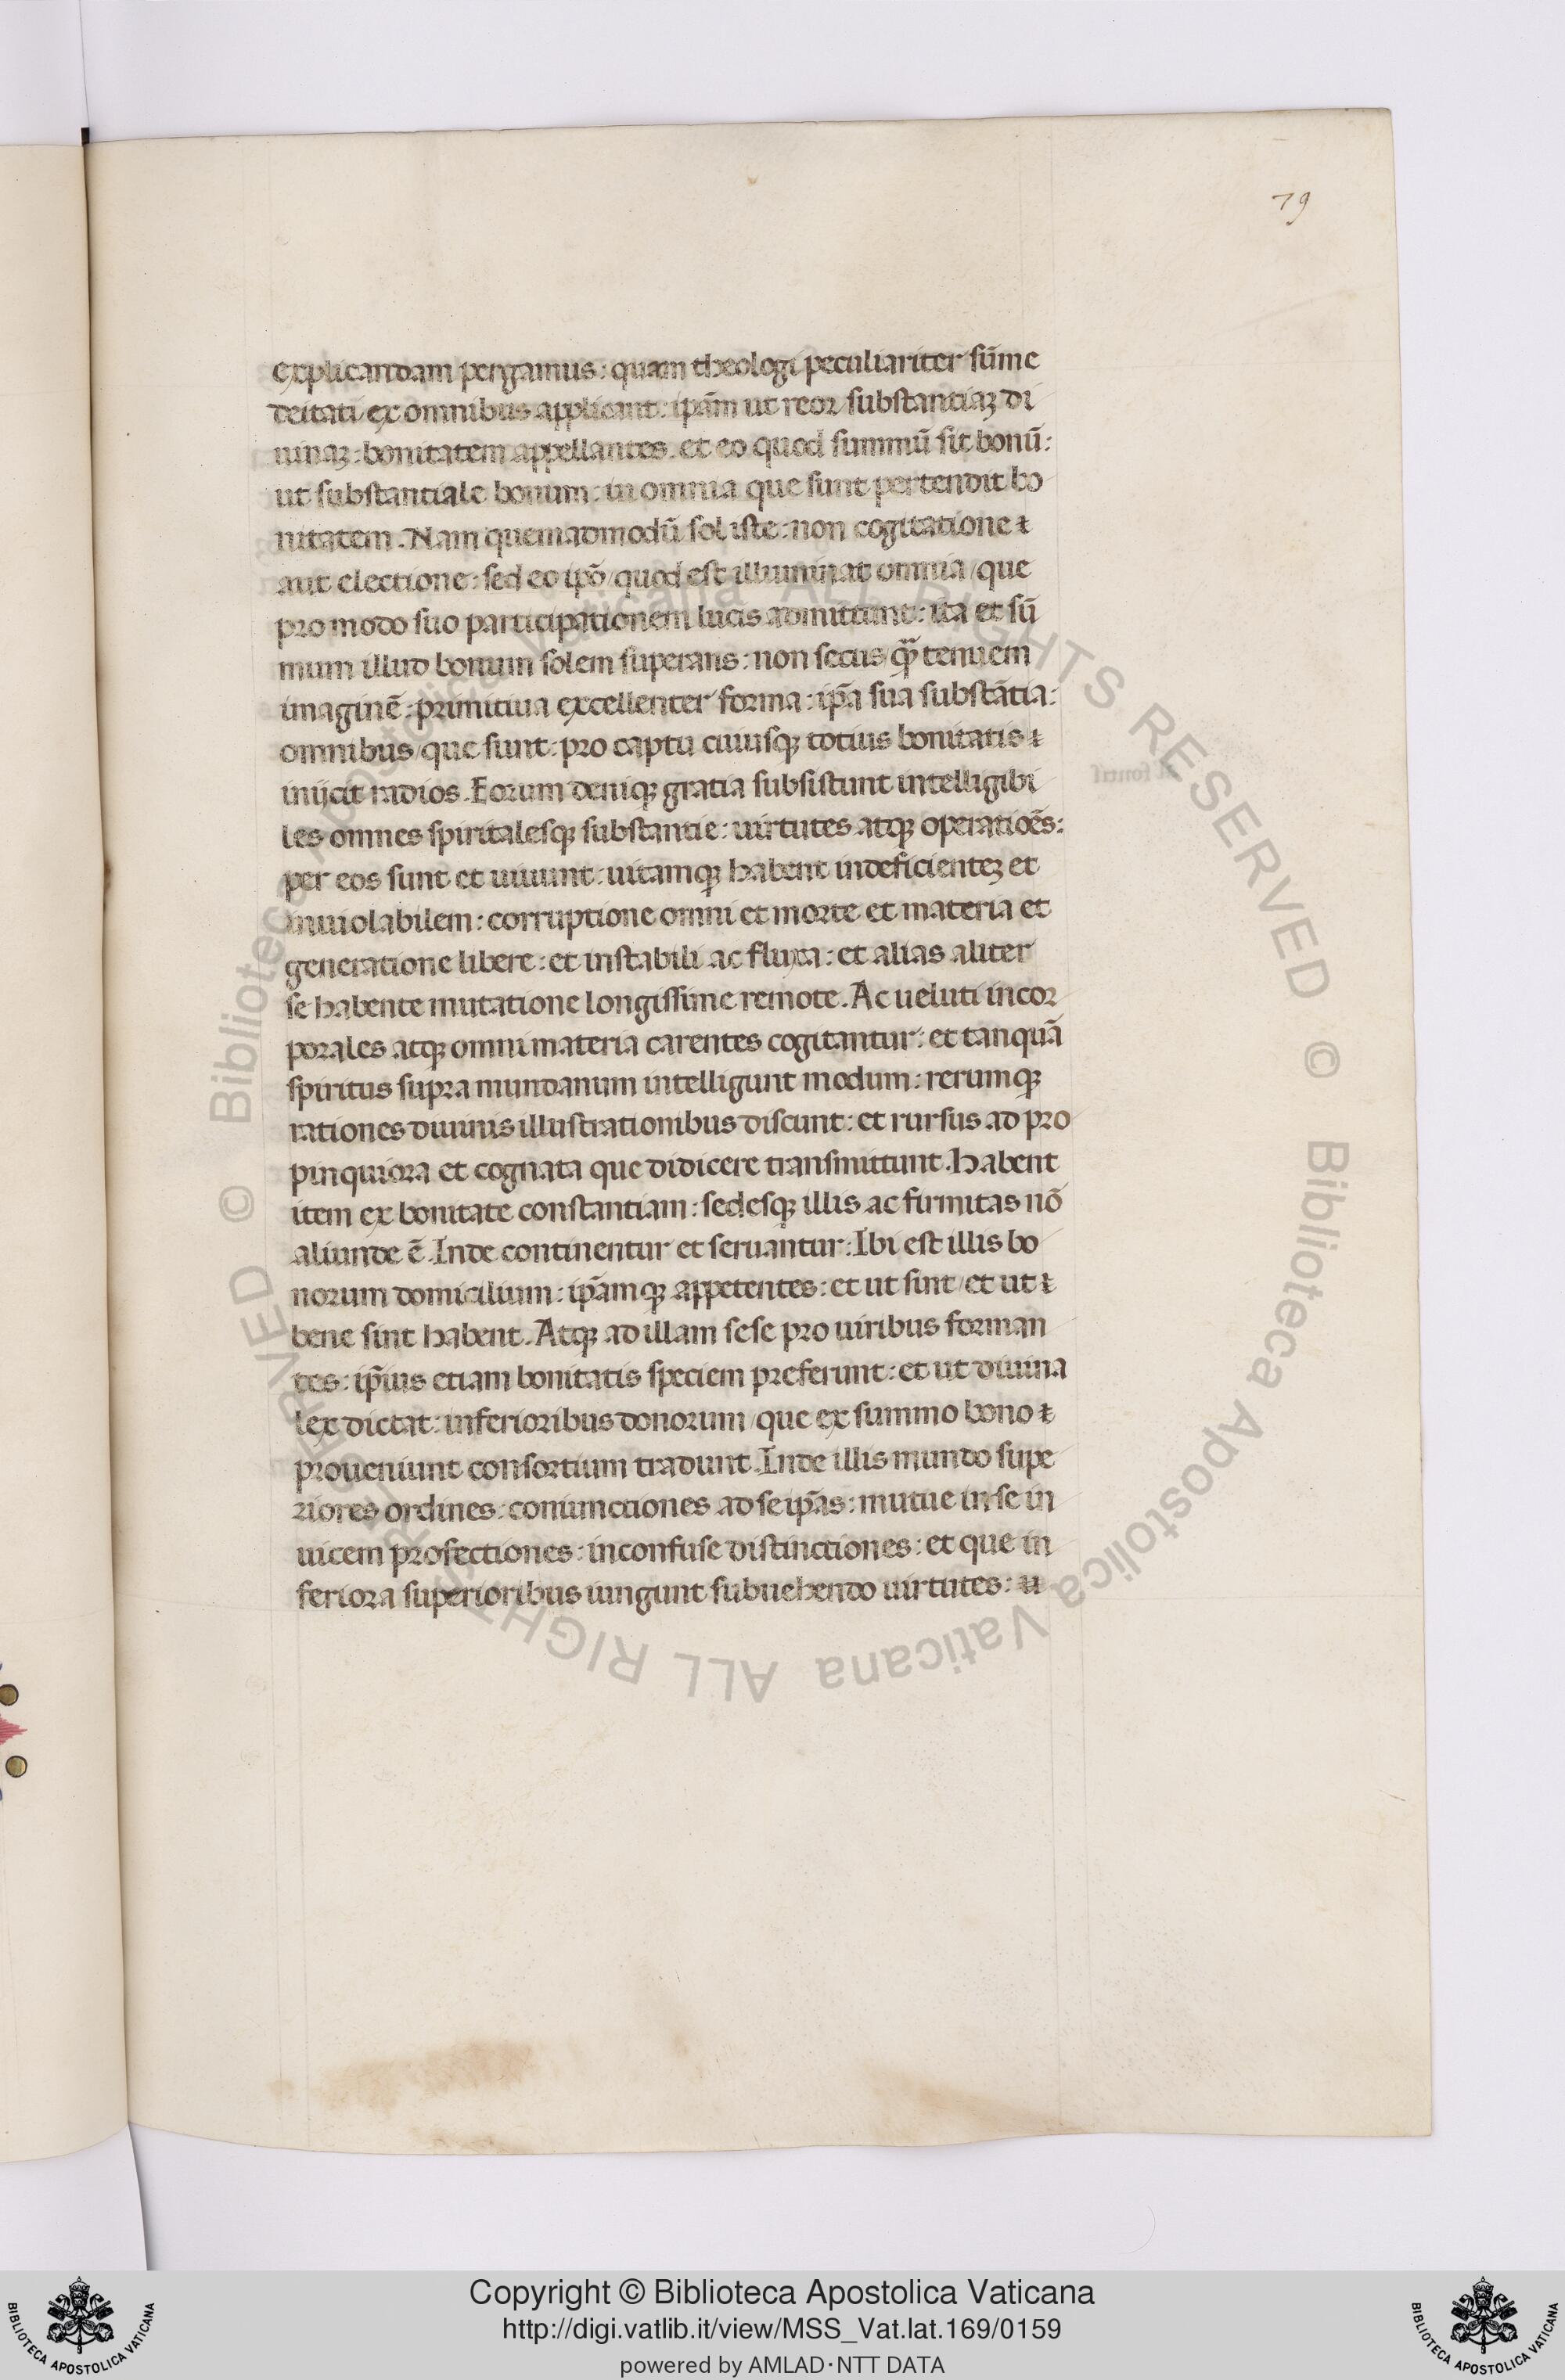 79
explicandam pergamus: quam theologi peculiariter sūme
deitati ex omnibus applicant: ipām ut reor substantiaꝫ di
uinaꝫ: bonitatem appellantes. et eo quod summū sit bonū:
ut substantiale bonum: in omnia que sunt pertendit bo
nitatem. Nam quemadmodū sol iste: non cogitatione
aut electione: sed eo ipō/quod est illuminat omnia/que
pro modo suo participationem lucis admittunt: ita et sū
mum illud bonum solem superans: non secus/qꝫ̄ tenuem
imaginē: primitiua excellenter forma: ipā sua substātia:
omnibus/que sunt: pro captu cuiusqꝫ totius bonitatis
inijcit radios. Eorum deniqꝫ gratia subsistunt intelligibi
les omnes spiritalesqꝫ substantie: uirtutes atqꝫ operatioēs:
per eos sunt et uiuunt: uitamqꝫ habent indeficienteꝫ et
inuiolabilem: corruptione omni et morte et materia et
generatione libere: et instabili ac fluxa: et alias aliter
se habente mutatione longissime remote. Ac ueluti incor
porales atqꝫ omni materia carentes cogitantur: et tanquā
spiritus supra mundanum intelligunt modum: rerumqꝫ
rationes diuinis illustrationibus discunt: et rursus ad pro
pinquiora et cognata que didicere transmittunt. Habent
item ex bonitate constantiam: sedesqꝫ illis ac firmitas nō
aliunde ē. Inde continentur et seruantur: Ibi est illis bo
norum domicilium: ipāmqꝫ appetentes: et ut sint/et ut
bene sint habent. Atqꝫ ad illam sese pro uiribus forman
tes: ipīus etiam bonitatis speciem preferunt: et ut diuina
lex dictat: inferioribus donorum/que ex summo bono
proueniunt consortium tradunt. Inde illis mundo supe
riores ordines: coniunctiones ad seipās: mutue in se in
uicem profectiones: inconfuse distinctiones: et que in
feriora superioribus iungunt subuehendo uirtutes:
© Biblioteca Apostolica Vaticana ALL RIGHTS RESERVED © Biblioteca Apostolica Vaticana ALL RIGHTS RESERVED
Copyright © Biblioteca Apostolica Vaticana
http://digi.vatlib.it/view/MSS_Vat.lat.169/0159
powered by AMLAD·NTT DATA
BIBLIOTECA APOSTOLICA VATICANA
BIBLIOTECA APOSTOLICA VATICANA